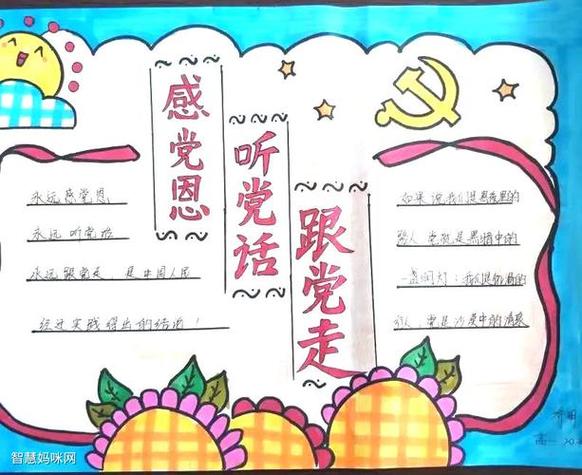 感党恩
听党话
跟党走
永远感党恩
永远听党话
永远跟党走 是中国人民
经过实践得出的结论！
如果说我们是黑夜里的
路人 党就是黑暗中的
一盏明灯；我们是
行人 党是沙漠中的清泉
高一
智慧妈咪网